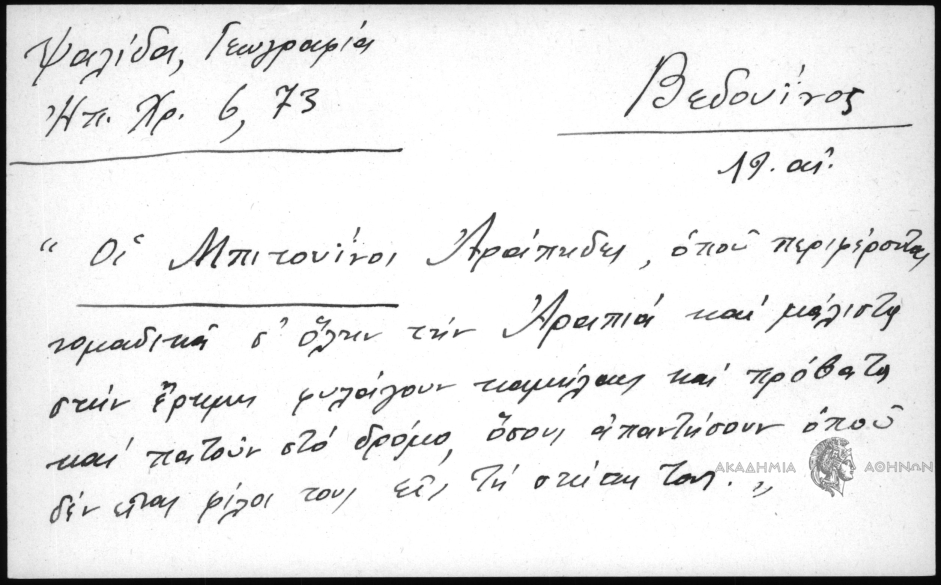 Ψαλίδα, Γεωγραφία
Ἠπ. Χρ. 6, 73
Βεδουΐνος
19. αἰ.
“ Οἱ Μπιτουΐνοι Ἀράπηδες, ὁποῦ περιφέρονται
νομαδικὰ σ' ὅλην τὴν Ἀραπιά καί μάλιστα
στὴν ἔρημο φυλάγουν καμήλαις καί πρόβατα
καί πατοῦν στό δρόμο, ὅσους ἀπαντήσουν ὁποῦ
δέν εἶναι φίλοι τους εἰς τὴ στάση τους. „
ΑΚΑΔΗΜΙΑ ΑΘΗΝΩΝ